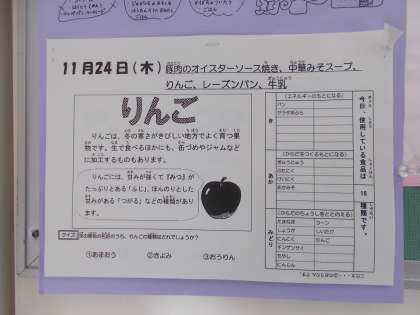 11月24日(木)
豚肉のオイスターソース焼き、中華みそスープ、
りんご、レーズンパン、牛乳
りんご
りんごは、冬の寒さがきびしい地方でよく育つ果
物です。生で食べるほかにも、缶づめやジャムなど
に加工するものもあります。
りんごには、甘みが強くて「みつ」が
たっぷりとある「ふじ」、ほんのりとした
甘みがある「つがる」などの種類があり
ます。
クイズ
①あまおう ②きよみ ③おうりん
今日、使用している食品は、15種類です。
き
(エネルギーのもとになる)
パン
サラダあぶら
あか
(からだをつくるもとになる)
ぎゅうにゅう
ぶたにく
みどり
(からだのちょうしをととのえる)
たまねぎ コーン
しょうが しいたけ
にんにく りんご
チンゲンサイ
もやし
にんじん